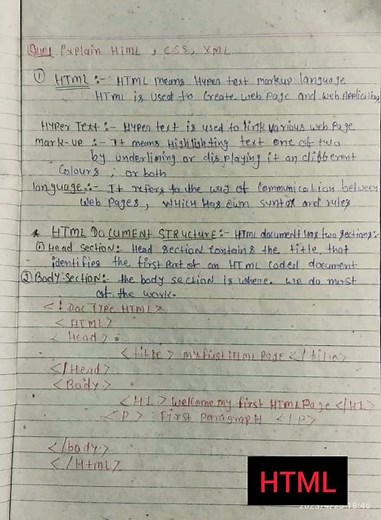 Que1 Explain HTML, CSS, XML
① HTML :- HTML means Hyper text markup language
HTML is used to Create Web Page and Web Application
HYPER TEXT :- Hypertext is used to link various web Page
mark-up :- It means Highlighting text one of two
by underlining or displaying it an different
Colours, or both
language :- It refers to the way of Communication between
Web Pages, which Has own syntax and rules
* HTML DOCUMENT STRUCTURE :- HTML document has two sections:
① Head Section: Head section contains the title, that
identifies the first part of an HTML coded document
② Body Section: the body section is where we do most
of the work.
<! Doc Type HTML>
<HTML>
<Head>
<title> my first HTML Page </title>
</Head>
<Body>
<H1> Welcome my first HTML Page </H1>
<P> First Paragraph </P>
</body>
</Html>
HTML